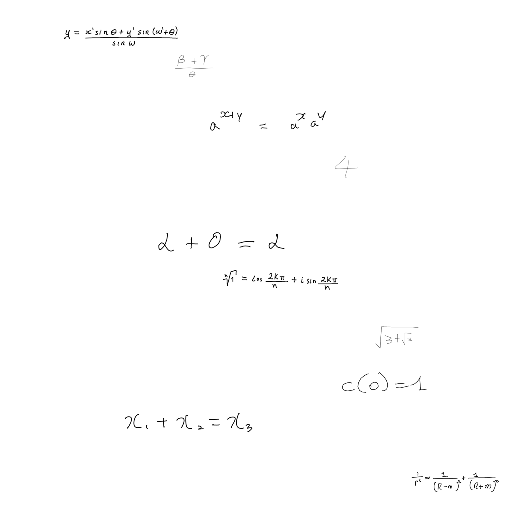 y = (x' sin θ + y' sin (ω+θ)) / sin ω
(β + γ) / θ
a^(x+y) = a^x a^y
4
α + 0 = α
ⁿ√1 = cos (2kπ / n) + i sin (2kπ / n)
√(3+√2)
c(0) = 1
x₁ + x₂ = x₃
1/r² = 1/(R-m)² + 1/(R+m)²